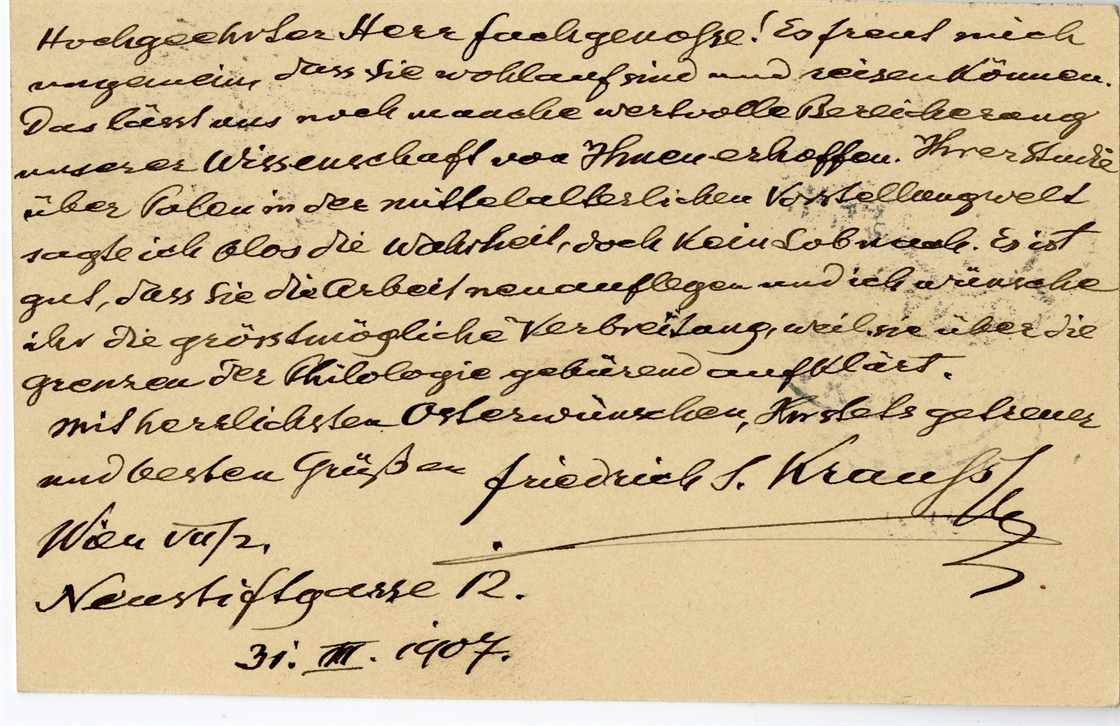 Hochgeehrter Herr Fachgenosse! Es freut mich
ungemein, dass Sie wohlauf sind und reisen können.
Das lässt uns noch manche wertvolle Bereicherung
unserer Wissenschaft von Ihnen erhoffen. Ihrer Studie
über Polen in der mittelalterlichen Vorstellungwelt
sagte ich blos die Wahrheit, doch kein Lob nach. Es ist
gut, dass Sie die Arbeit neuauflegen und ich wünsche
ihr die grösstmögliche Verbreitung, weil sie über die
Grenzen der Philologie gebürend aufklärt.
Mit herzlichsten Osterwünschen, Ihr stets getreuer
und besten Grüßen Friedrich S. Krauss
Wien VII/2,
Neustiftgasse 12.
31. III. 1907.